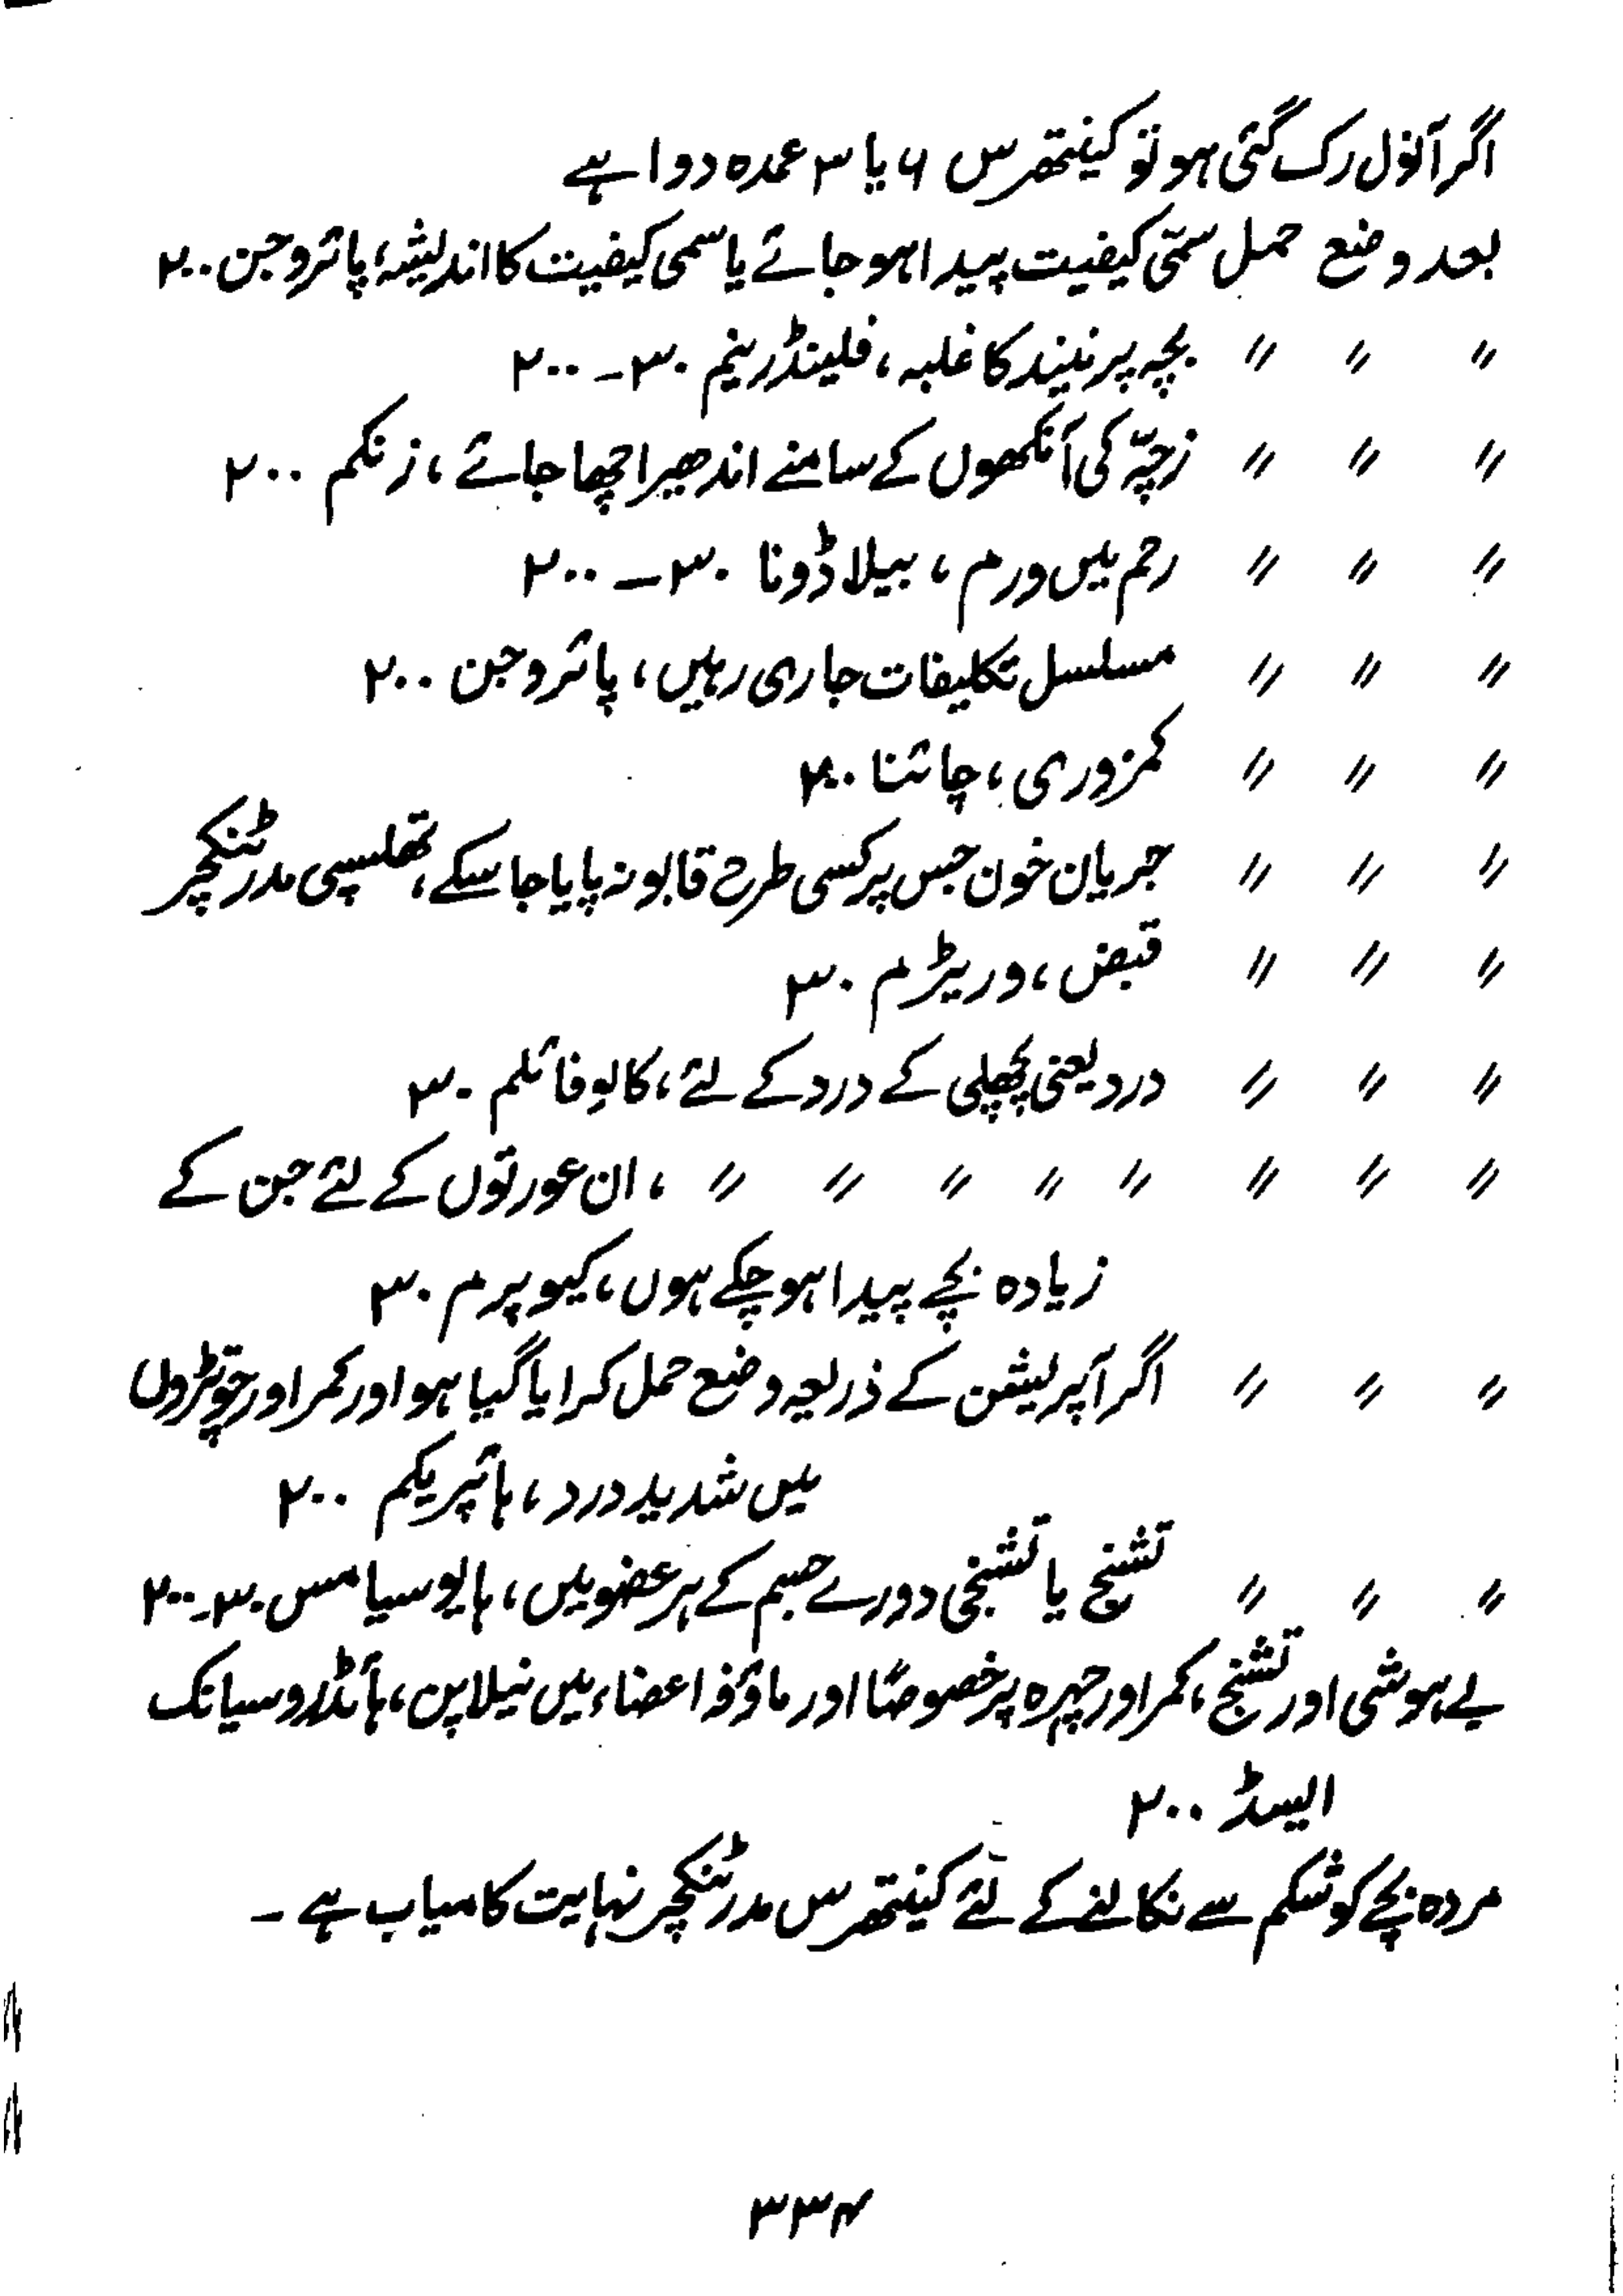 اگر آنول رک گئی ہو تو کینتھرس ۶ یا ۳ عمدہ دوا ہے
بعد وضع حمل سمّی کیفیت پیدا ہو جائے یا سمی کیفیت کا اندیشہ، پائروجن ۲۰۰
〃 〃 〃 بچہ پر نیند کا غلبہ، فلینڈرینم ۳۰ـ ۲۰۰
〃 〃 〃 زچّہ کی آنکھوں کے سامنے اندھیرا چھا جائے، زنکم ۲۰۰
〃 〃 〃 رحم میں ورم، بیلاڈونا ۳۰ـ ۲۰۰
〃 〃 〃 مسلسل تکلیفات جاری رہیں، پائروجن ۲۰۰
〃 〃 〃 کمزوری، چائنا
〃 〃 〃 جریان خون جس پر کسی طرح قابو نہ پایا جا سکے، تھلسپی مدر ٹنکچر
〃 〃 〃 قبض، وریڑم ۳۰
〃 〃 〃 درد یعنی پچھلی کے درد کے لئے، کالوفائلم ۳۰
〃 〃 〃 〃 〃 〃 〃 〃 ، ان عورتوں کے لئے جن کے
زیادہ بچے پیدا ہو چکے ہوں، کیوپرم ۳۰
〃 〃 〃 اگر آپریشن کے ذریعہ وضع حمل کرایا گیا ہو اور کمر اور چوتڑوں
میں شدید درد، ہائپریکم ۲۰۰
〃 〃 〃 تشنج یا تشنجی دورے جسم کے ہر عضو میں، ہایوسیامس ۳۰ـ۲۰۰
بے ہوشی اور تشنج، کمر اور چہرہ پر خصوصًا اور ماؤف اعضاء میں نیلا پن، ہائڈروسیانک
ایسڈ ۲۰۰
مردہ بچے کو شکم سے نکالنے کے لئے کینتھرس مدر ٹنکچر نہایت کامیاب ہے ۔
۳۳۴